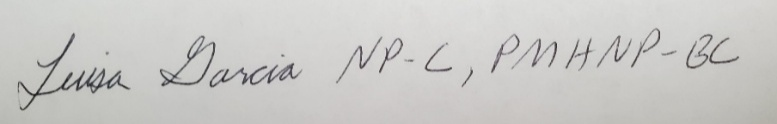 Luisa Garcia NP-C, PMHNP-BC